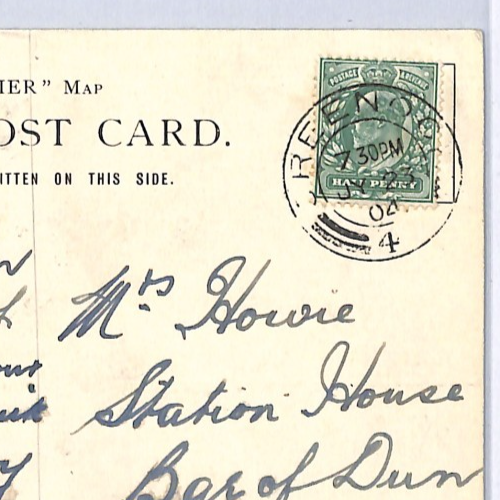 IER” MAP
OST CARD.
ITTEN ON THIS SIDE.
POSTAGE REVENUE
HALF PENNY
REENOCK
7 30PM
JY 23
04
4
Mrs Howie
Station House
Bar of Dun